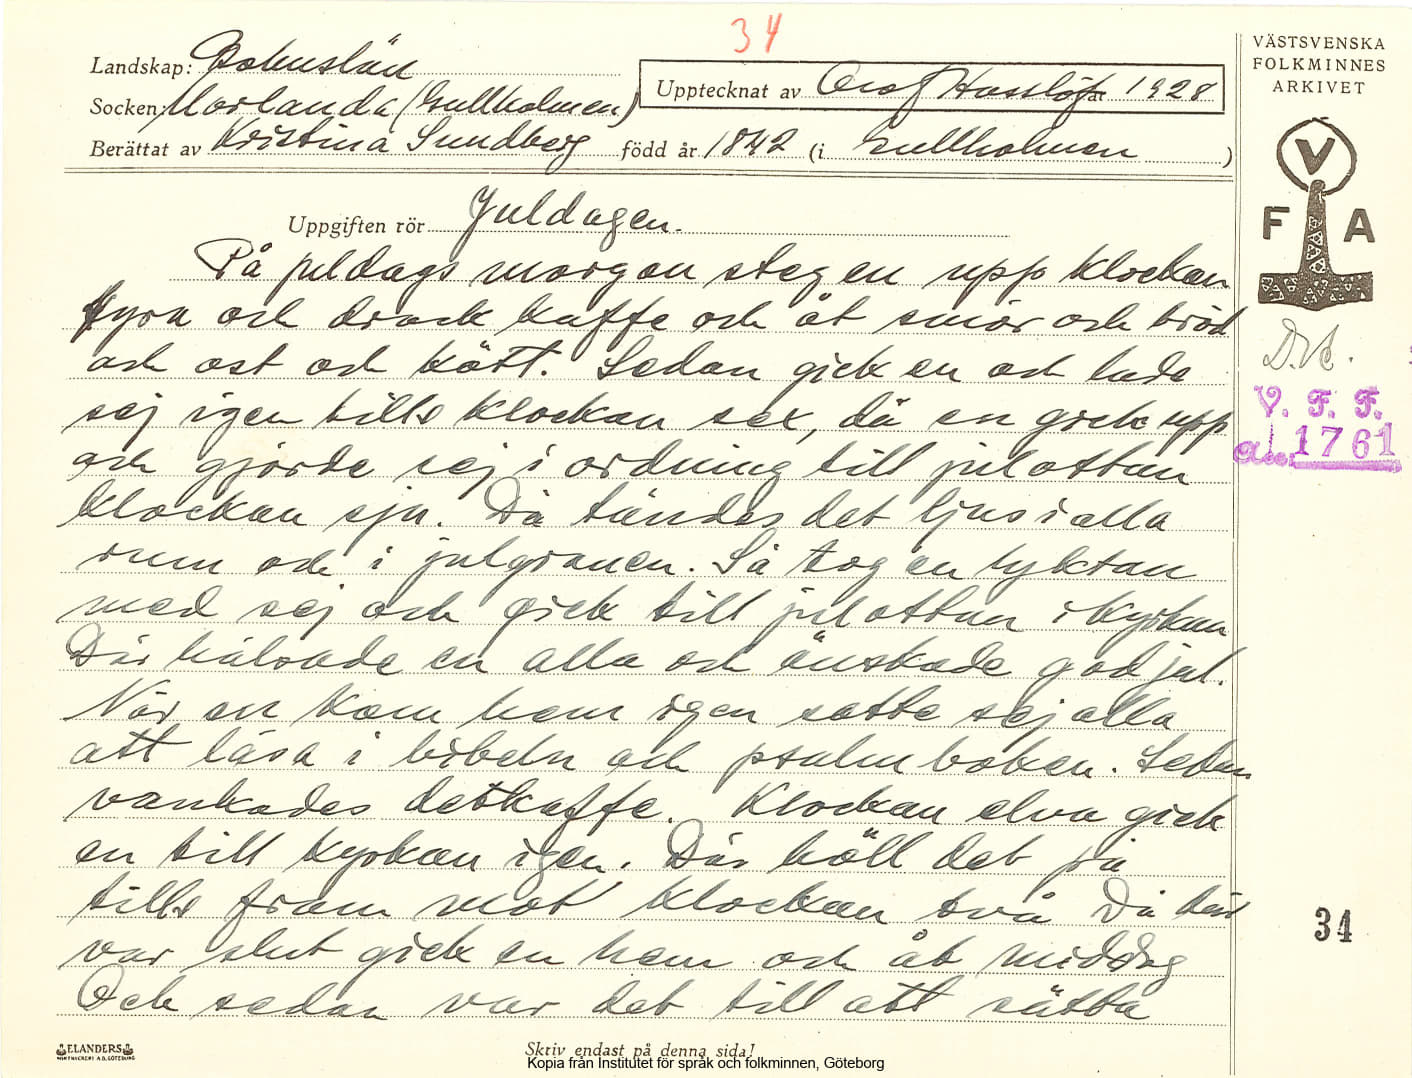 34
Landskap: Bohuslän
Socken: Morlanda (Gullholmen)
Upptecknat av Olof Hasslöf år 1928
Berättat av Kristina Sundberg född år 1842 (i Gullholmen)
VÄSTSVENSKA
FOLKMINNES
ARKIVET
V
F A
D.A.
V. F. F.
acc. 1761
Uppgiften rör Juldagen.
På juldags morgon steg en upp klockan
fyra och drack kaffe och åt smör och bröd
och ost och kött. Sedan gick en och lade
sej igen tills klockan sex, då en gick upp
och gjorde sej i ordning till julottan
klockan sju. Då tändes det ljus i alla
rum och i julgranen. Så tog en lyktan
med sej och gick till julottan i kyrkan
Där hälsade en alla och önskade god jul.
När en kom hem igen satte sej alla
att läsa i bibeln och psalmboken. Sedan
vankades det kaffe. Klockan elva gick
en till kyrkan igen. Där höll det på
tills fram mot klockan två Då den
var slut gick en hem och åt middag
Och sedan var det till att sätta
34
ELANDERS
BOKTRYCKERI A.B. GÖTEBORG
Skriv endast på denna sida!
Kopia från Institutet för språk och folkminnen, Göteborg